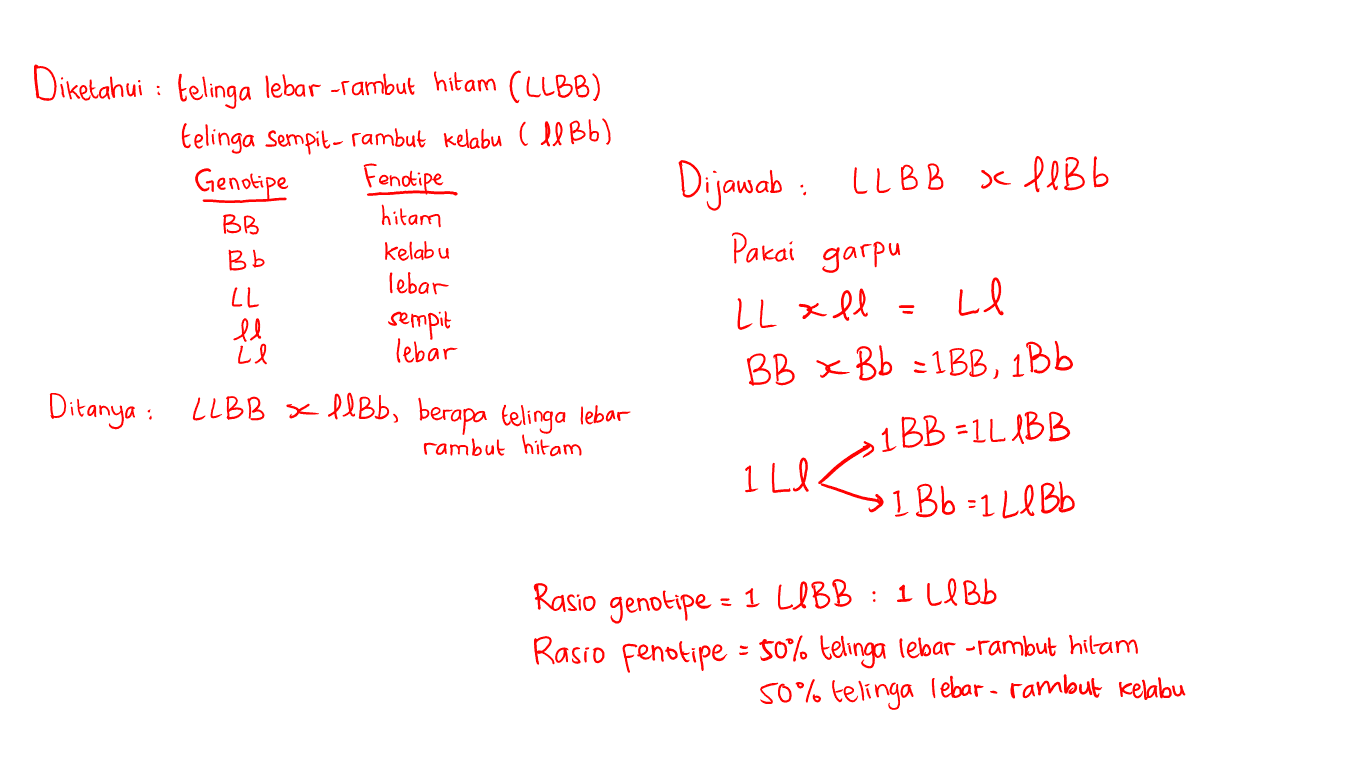 Diketahui : telinga lebar - rambut hitam (LLBB)
telinga sempit - rambut kelabu (llBb)
Genotipe Fenotipe
BB hitam
Bb kelabu
LL lebar
ll sempit
Ll lebar
Ditanya : LLBB x llBb, berapa telinga lebar
rambut hitam
Dijawab : LLBB x llBb
Pakai garpu
LL x ll = Ll
BB x Bb = 1BB, 1Bb
1BB = 1LlBB
1 Ll
1Bb = 1LlBb
Rasio genotipe = 1 LlBB : 1 LlBb
Rasio Fenotipe = 50% telinga lebar - rambut hitam
50% telinga lebar - rambut kelabu